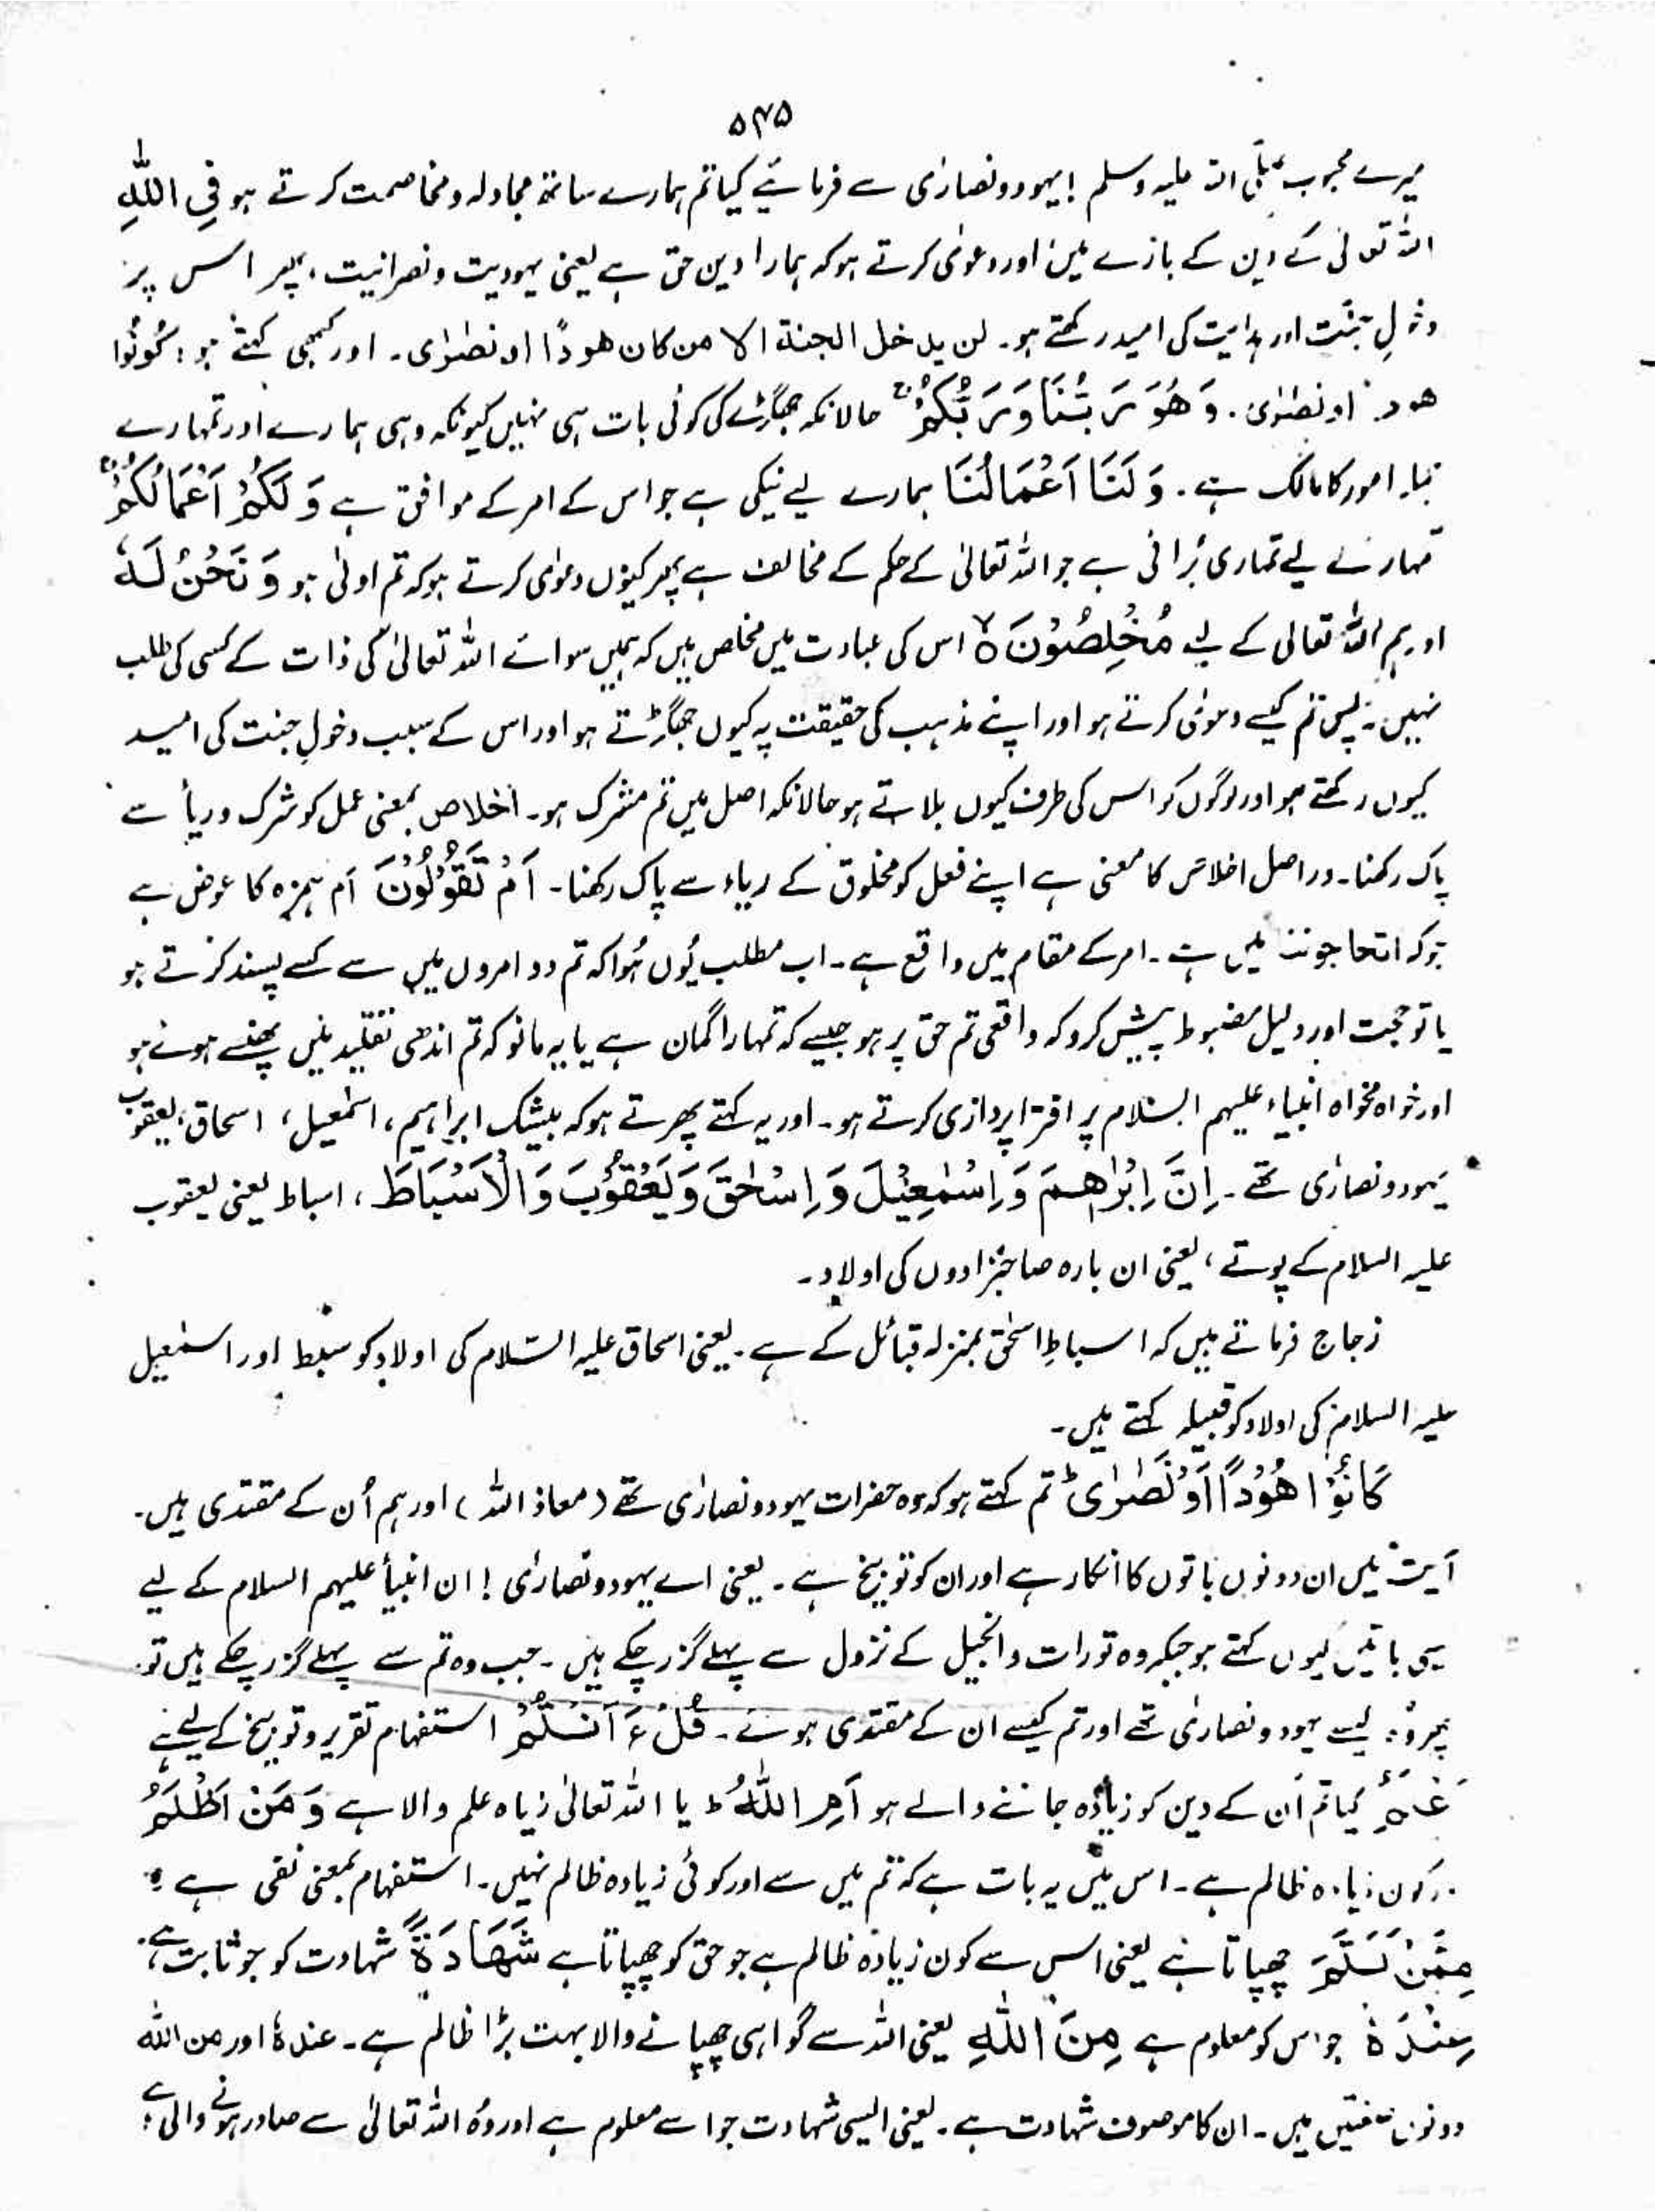 ۵۴۵
میرے محبوب صلی اللہ علیہ وسلم ! یہود و نصارٰی سے فرمائیے کیا تم ہمارے ساتھ مجادلہ و مخاصمت کرتے ہو فِی اللّٰہِ
اللہ تعالیٰ کے دین کے بارے میں اور دعوٰی کرتے ہو کہ ہمارا دین حق ہے یعنی یہودیت و نصرانیت، پھر اس پر
دخولِ جنّت اور ہدایت کی امید رکھتے ہو۔ لن یدخل الجنۃ الا من کان ھودًا او نصٰرٰی۔ اور کبھی کہتے ہو : کُونُوا
ھودًا او نصٰرٰی۔ وَھُوَ رَبُّنَا وَرَبُّکُمْ حالانکہ جھگڑے کی کوئی بات ہی نہیں کیونکہ وہی ہمارے اور تمہارے
امور کا مالک ہے۔ وَ لَنَا اَعْمَالُنَا ہمارے لیے نیکی ہے جو اس کے امر کے موافق ہے وَ لَکُمْ اَعْمَالُکُمْ
تمہارے لیے تمہاری بُرائی ہے جو اللہ تعالیٰ کے حکم کے مخالف ہے پھر کیوں دعوٰی کرتے ہو کہ تم اولیٰ ہو وَ نَحْنُ لَہٗ
اور ہم اللہ تعالی کے لیے مُخْلِصُوْنَ ۙ اس کی عبادت میں مخلص ہیں کہ ہمیں سوائے اللہ تعالیٰ کی ذات کے کسی کی طلب
نہیں۔ پس تم کیسے دعوٰی کرتے ہو اور اپنے مذہب کی حقیقت پہ کیوں جھگڑتے ہو اور اس کے سبب دخولِ جنت کی امید
کیوں رکھتے ہو اور لوگوں کو اس کی طرف کیوں بلاتے ہو حالانکہ اصل میں تم مشرک ہو۔ اخلاص بمعنی عمل کو شرک و ریأ سے
پاک رکھنا۔ دراصل اخلاص کا معنی ہے اپنے فعل کو مخلوق کے ریاء سے پاک رکھنا۔ اَمْ تَقُوْلُوْنَ اَم ہمزہ کا عوض ہے
جو کہ اتحاجوننا میں ہے۔ امر کے مقام میں واقع ہے۔ اب مطلب یُوں ہُوا کہ تم دو امروں میں سے کسے پسند کرتے ہو
یا تو حجت اور دلیل مضبوط پیش کرو کہ واقعی تم حق پر ہو جیسے کہ تمہارا گمان ہے یا یہ مانو کہ تم اندھی تقلید میں پھنسے ہوئے ہو
اور خواہ مخواہ انبیاء علیہم السلام پر افترا پردازی کرتے ہو۔ اور یہ کہتے پھرتے ہو کہ بیشک ابراہیم، اسمٰعیل، اسحاق، یعقوب
یہود و نصارٰی تھے۔ اِنَّ اِبْرٰھٖمَ وَ اِسْمٰعِیْلَ وَ اِسْحٰقَ وَ یَعْقُوْبَ وَ الْاَسْبَاطَ ، اسباط یعنی یعقوب
علیہ السلام کے پوتے، یعنی ان بارہ صاحبزادوں کی اولاد۔
زجاج فرماتے ہیں کہ اسباطِ اسحٰق بمنزلہ قبائل کے ہے۔ یعنی اسحاق علیہ السّلام کی اولاد کو سبط اور اسمٰعیل
علیہ السلام کی اولاد کو قبیلہ کہتے ہیں۔
کَانُوْا ھُوْدًا اَوْ نَصٰرٰی ؕ تم کہتے ہو کہ وہ حضرات یہود و نصارٰی تھے (معاذ اللہ) اور ہم اُن کے مقتدی ہیں۔
آیت میں ان دونوں باتوں کا انکار ہے اور ان کو توبیخ ہے۔ یعنی اے یہود و نصارٰی ! ان انبیأ علیہم السلام کے لیے
باتیں کیوں کہتے ہو جبکہ وہ تورات و انجیل کے نزول سے پہلے گزر چکے ہیں۔ جب وہ تم سے پہلے گزر چکے ہیں تو
پھر وُہ کیسے یہود و نصارٰی تھے اور تم کیسے ان کے مقتدی ہوئے۔ قُلْ ءَاَنْتُمْ استفہام تقریر و توبیخ کے لیے ہے
اَعْلَمُ کیا تم اُن کے دین کو زیادہ جاننے والے ہو اَمِ اللّٰہُ ؕ یا اللہ تعالیٰ زیادہ علم والا ہے وَ مَنْ اَظْلَمُ
کون زیادہ ظالم ہے۔ اس میں یہ بات ہے کہ تم میں سے اور کوئی زیادہ ظالم نہیں۔ استفہام بمعنی نفی ہے
مِمَّنْ کَتَمَ چھپاتا ہے یعنی اس سے کون زیادہ ظالم ہے جو حق کو چھپاتا ہے شَھَادَۃً شہادت کو جو ثابت ہے
عِنْدَہٗ جو اس کو معلوم ہے مِنَ اللّٰہِ یعنی اللہ سے گواہی چھپانے والا بہت بڑا ظالم ہے۔ عندہٗ اور من اللہ
دونوں صفتیں ہیں۔ ان کا موصوف شہادت ہے۔ یعنی ایسی شہادت جو اسے معلوم ہے اور وُہ اللہ تعالیٰ سے صادر ہونے والی ہے